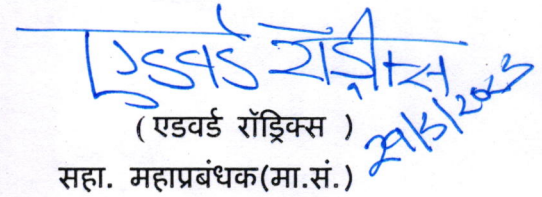 एडवर्ड रॉड्रिक्स
( एडवर्ड रॉड्रिक्स )
सहा. महाप्रबंधक(मा.सं.)